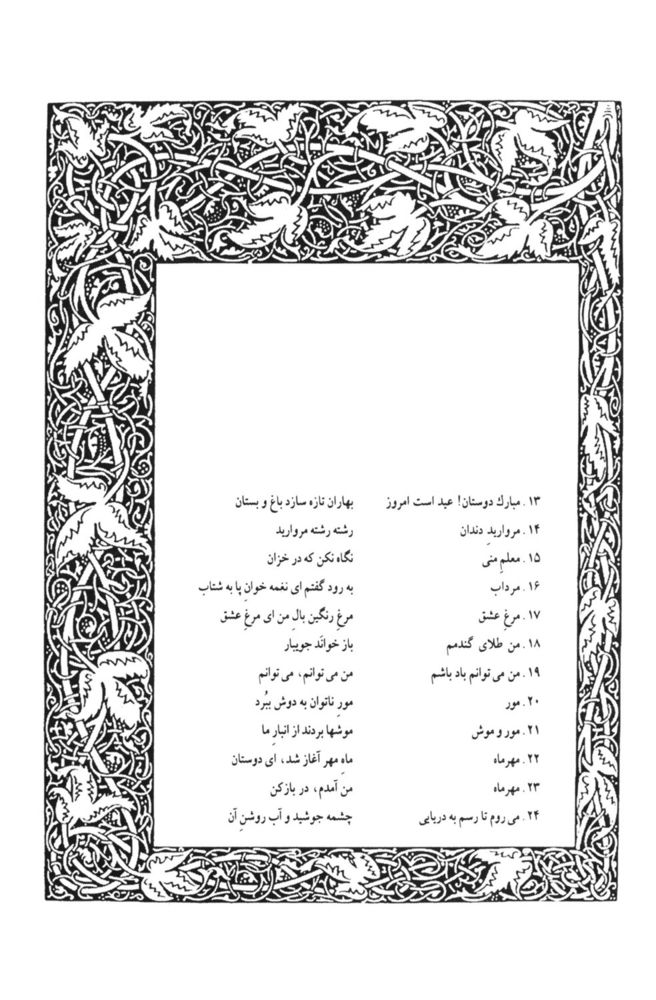 ۱۳. مبارك دوستان! عید است امروز بهاران تازه سازد باغ و بستان
۱۴. مرواریدِ دندان رشته رشته مروارید
۱۵. معلمِ منی نگاه نکن که در خزان
۱۶. مرداب به رود گفتم ای نغمه خوانِ پا به شتاب
۱۷. مرغِ عشق مرغِ رنگین بالِ من ای مرغِ عشق
۱۸. من طلای گندمم باز خوانَد جویبار
۱۹. من می‌توانم باد باشم من می‌توانم، می‌توانم
۲۰. مور مورِ ناتوان به دوش ببُرد
۲۱. مور و موش موشها بردند از انبارِ ما
۲۲. مهرماه ماهِ مهر آغاز شد، ای دوستان
۲۳. مهرماه من آمدم، در بازکن
۲۴. می‌روم تا رسم به دریایی چشمه جوشید و آب روشنِ آن